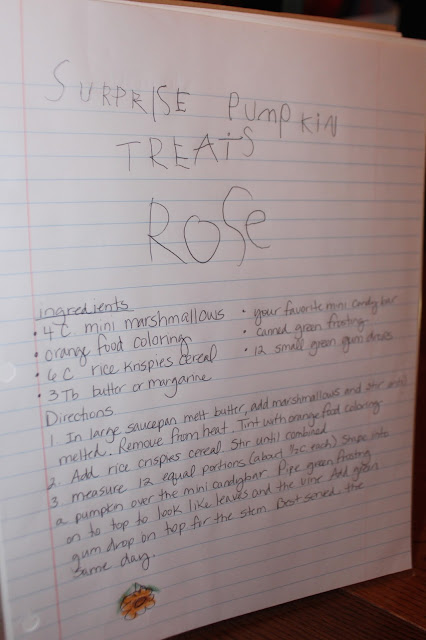 SURPRISE PUMPKIN
TREATS
ROSE
ingredients
• 4 C mini marshmallows
• orange food coloring
• 6 C rice krispies cereal
• 3 Tb butter or margarine
• your favorite mini candybar
• canned green frosting
• 12 small green gum drops
Directions
1. In large saucepan melt butter, add marshmallows and stir until
melted. Remove from heat. Tint with orange food coloring.
2. Add rice crispies cereal. Stir until combined
3 measure 12 equal portions (about ½ C each) Shape into
a pumpkin over the mini candybar. Pipe green frosting
on to top to look like leaves and the vine. Add green
gum drop on top for the stem. Best served the
same day.